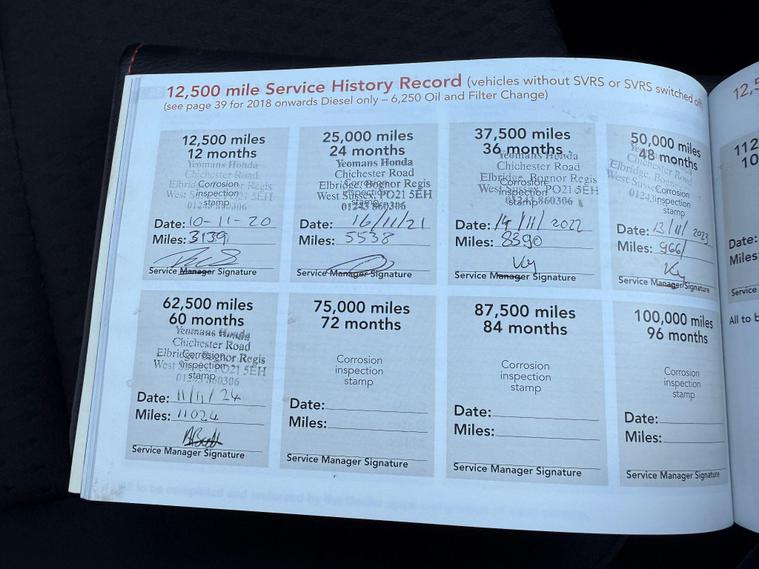 12,500 mile Service History Record (vehicles without SVRS or SVRS switched off)
(see page 39 for 2018 onwards Diesel only – 6,250 Oil and Filter Change)
12,500 miles
12 months
Yeomans Honda
Chichester Road
Corrosion
inspection
stamp
Date: 10-11-20
Miles: 3139
Service Manager Signature
25,000 miles
24 months
Yeomans Honda
Chichester Road
Elbridge, Bognor Regis
West Sussex, PO21 5EH
01243 860306
Corrosion
inspection
stamp
Date: 16/11/21
Miles: 5538
Service Manager Signature
37,500 miles
36 months
Yeomans Honda
Chichester Road
Elbridge, Bognor Regis
West Sussex, PO21 5EH
01243 860306
Corrosion
inspection
stamp
Date: 14/11/2022
Miles: 8390
Service Manager Signature
50,000 miles
48 months
Yeomans Honda
Chichester Road
Corrosion
inspection
stamp
Date: 13/11/2023
Miles: 9661
Service Manager Signature
62,500 miles
60 months
Yeomans Honda
Chichester Road
Elbridge, Bognor Regis
West Sussex, PO21 5EH
01243 860306
Corrosion
inspection
stamp
Date: 11/11/24
Miles: 11024
Service Manager Signature
75,000 miles
72 months
Corrosion
inspection
stamp
Date:
Miles:
Service Manager Signature
87,500 miles
84 months
Corrosion
inspection
stamp
Date:
Miles:
Service Manager Signature
100,000 miles
96 months
Corrosion
inspection
stamp
Date:
Miles:
Service Manager Signature
12,5
112
10
Date:
Miles
Service
All to b